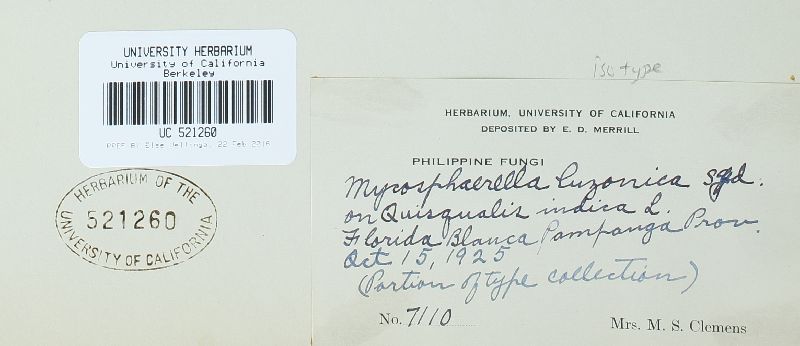 UNIVERSITY HERBARIUM
University of California
Berkeley
UC 521260
PREP BY Else Vellinga, 22 Feb 2016
HERBARIUM OF THE
521260
UNIVERSITY OF CALIFORNIA
isotype
HERBARIUM, UNIVERSITY OF CALIFORNIA
DEPOSITED BY E. D. MERRILL
PHILIPPINE FUNGI
Mycosphaerella luzonica Syd.
on Quisqualis indica L.
Florida Blanca Pampanga Prov.
Oct 15, 1925
(Portion of type collection)
No. 7110
Mrs. M. S. Clemens